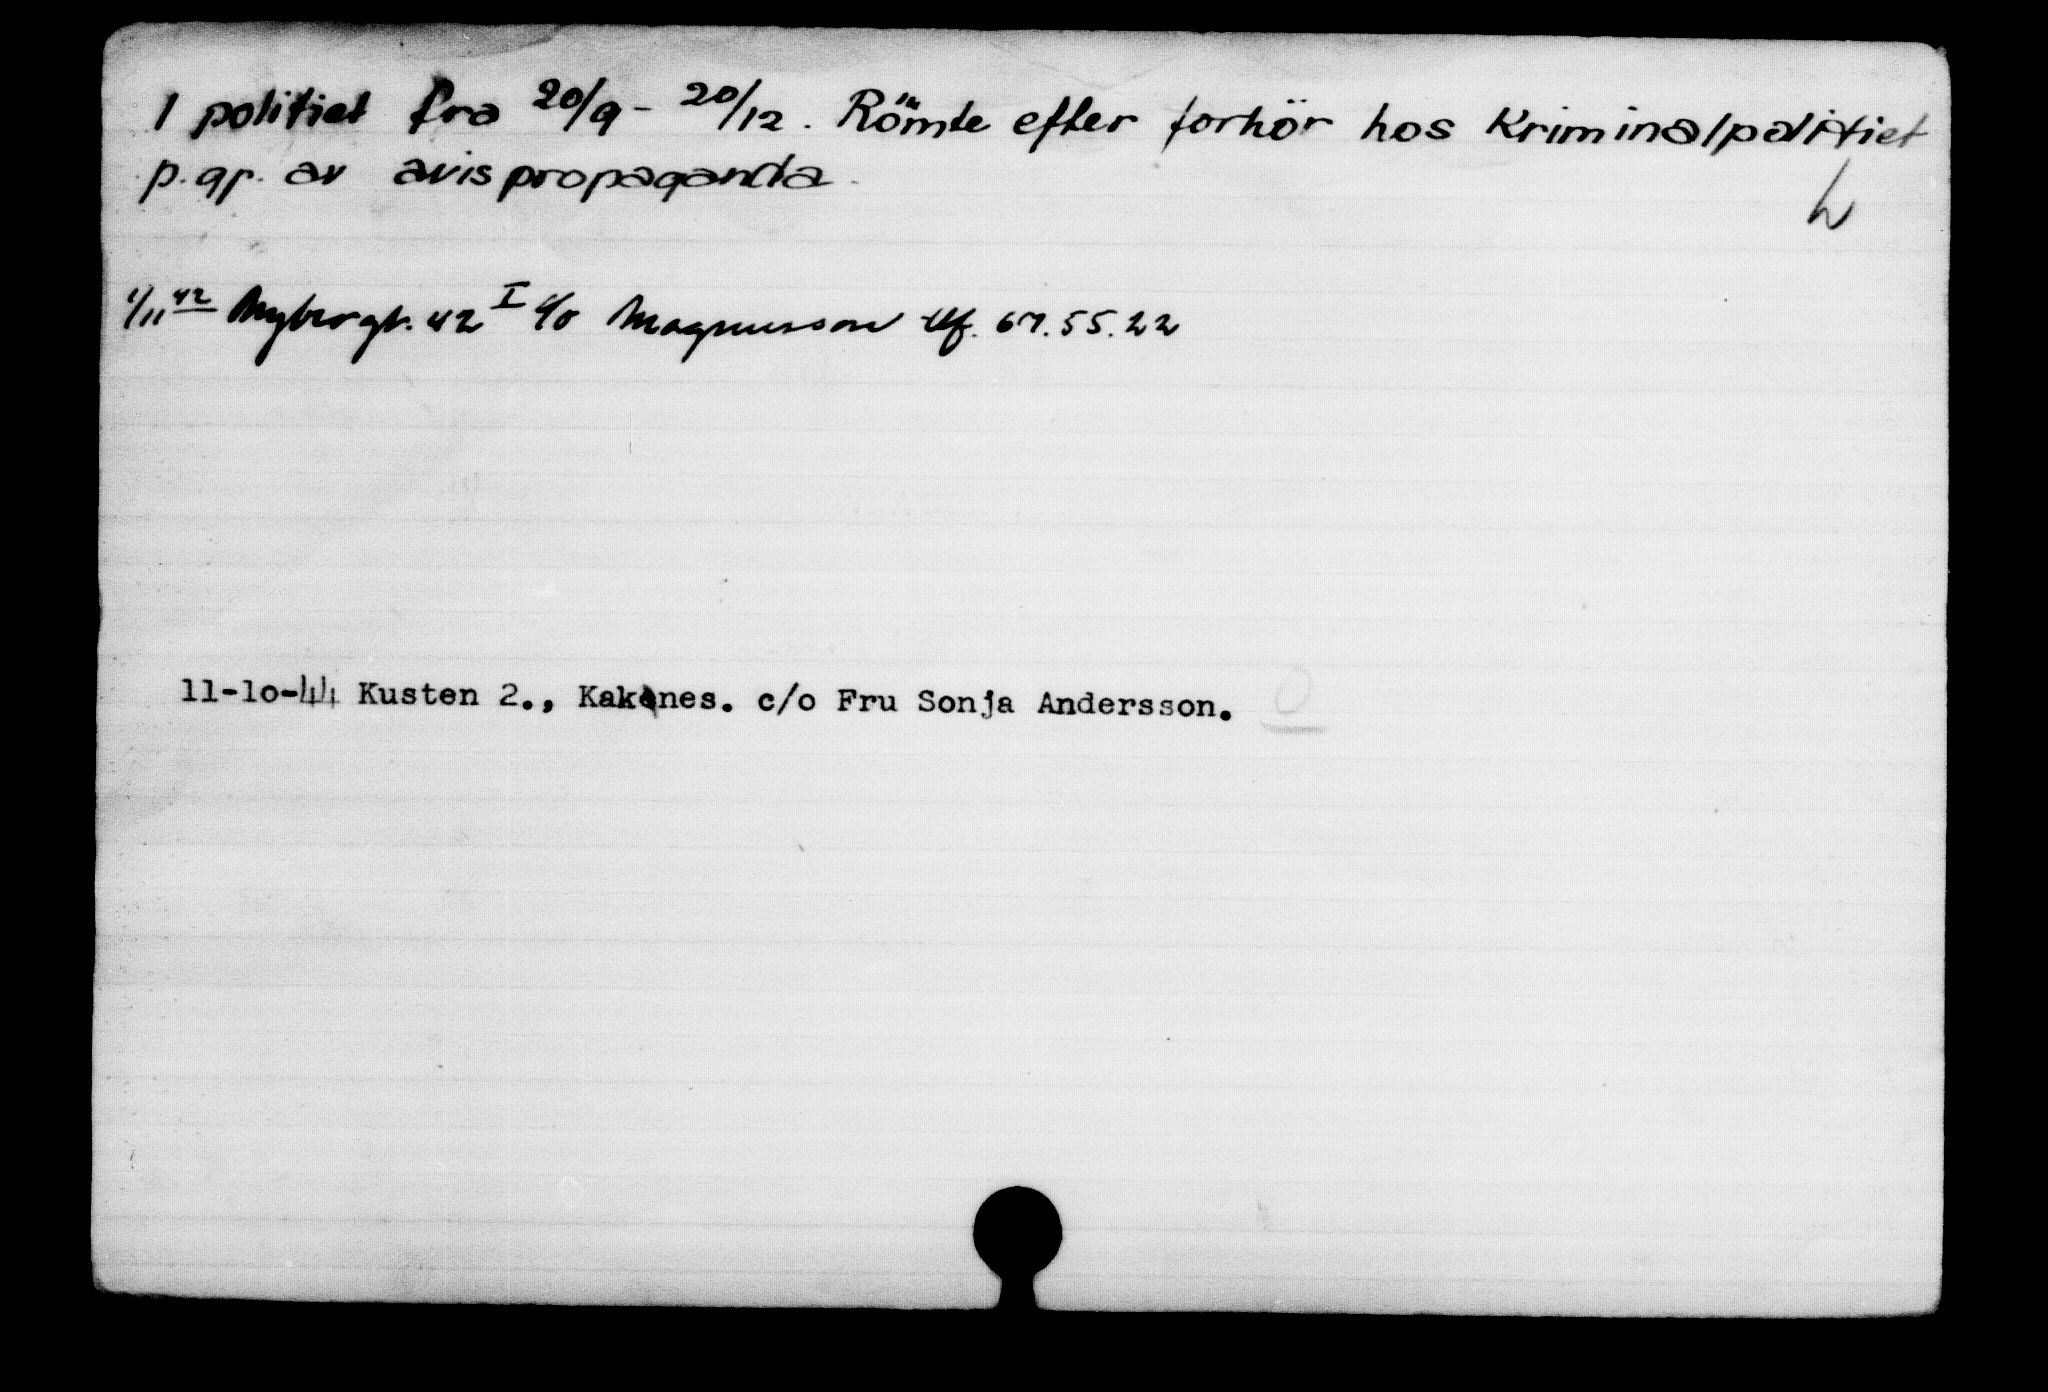 I politiet fra 20/9 - 20/12. Römte efter forhör hos Kriminalpolitiet
p.gr. av avispropaganda.
1/11 42 Nybergt. 42 I c/o Magnusson tlf. 67.55.22
11-10-44 Kusten 2., Kaknes. c/o Fru Sonja Andersson.